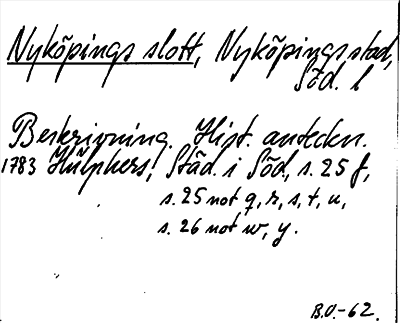 Nyköpings slott, Nyköpings stad,
Söd. l
Beskrivning. Hist. anteckn.
1783 Hülphers, Städ. i Söd., s. 25 f,
s. 25 not q, r, s, t, u,
s. 26 not w, y.
B.U.-62.